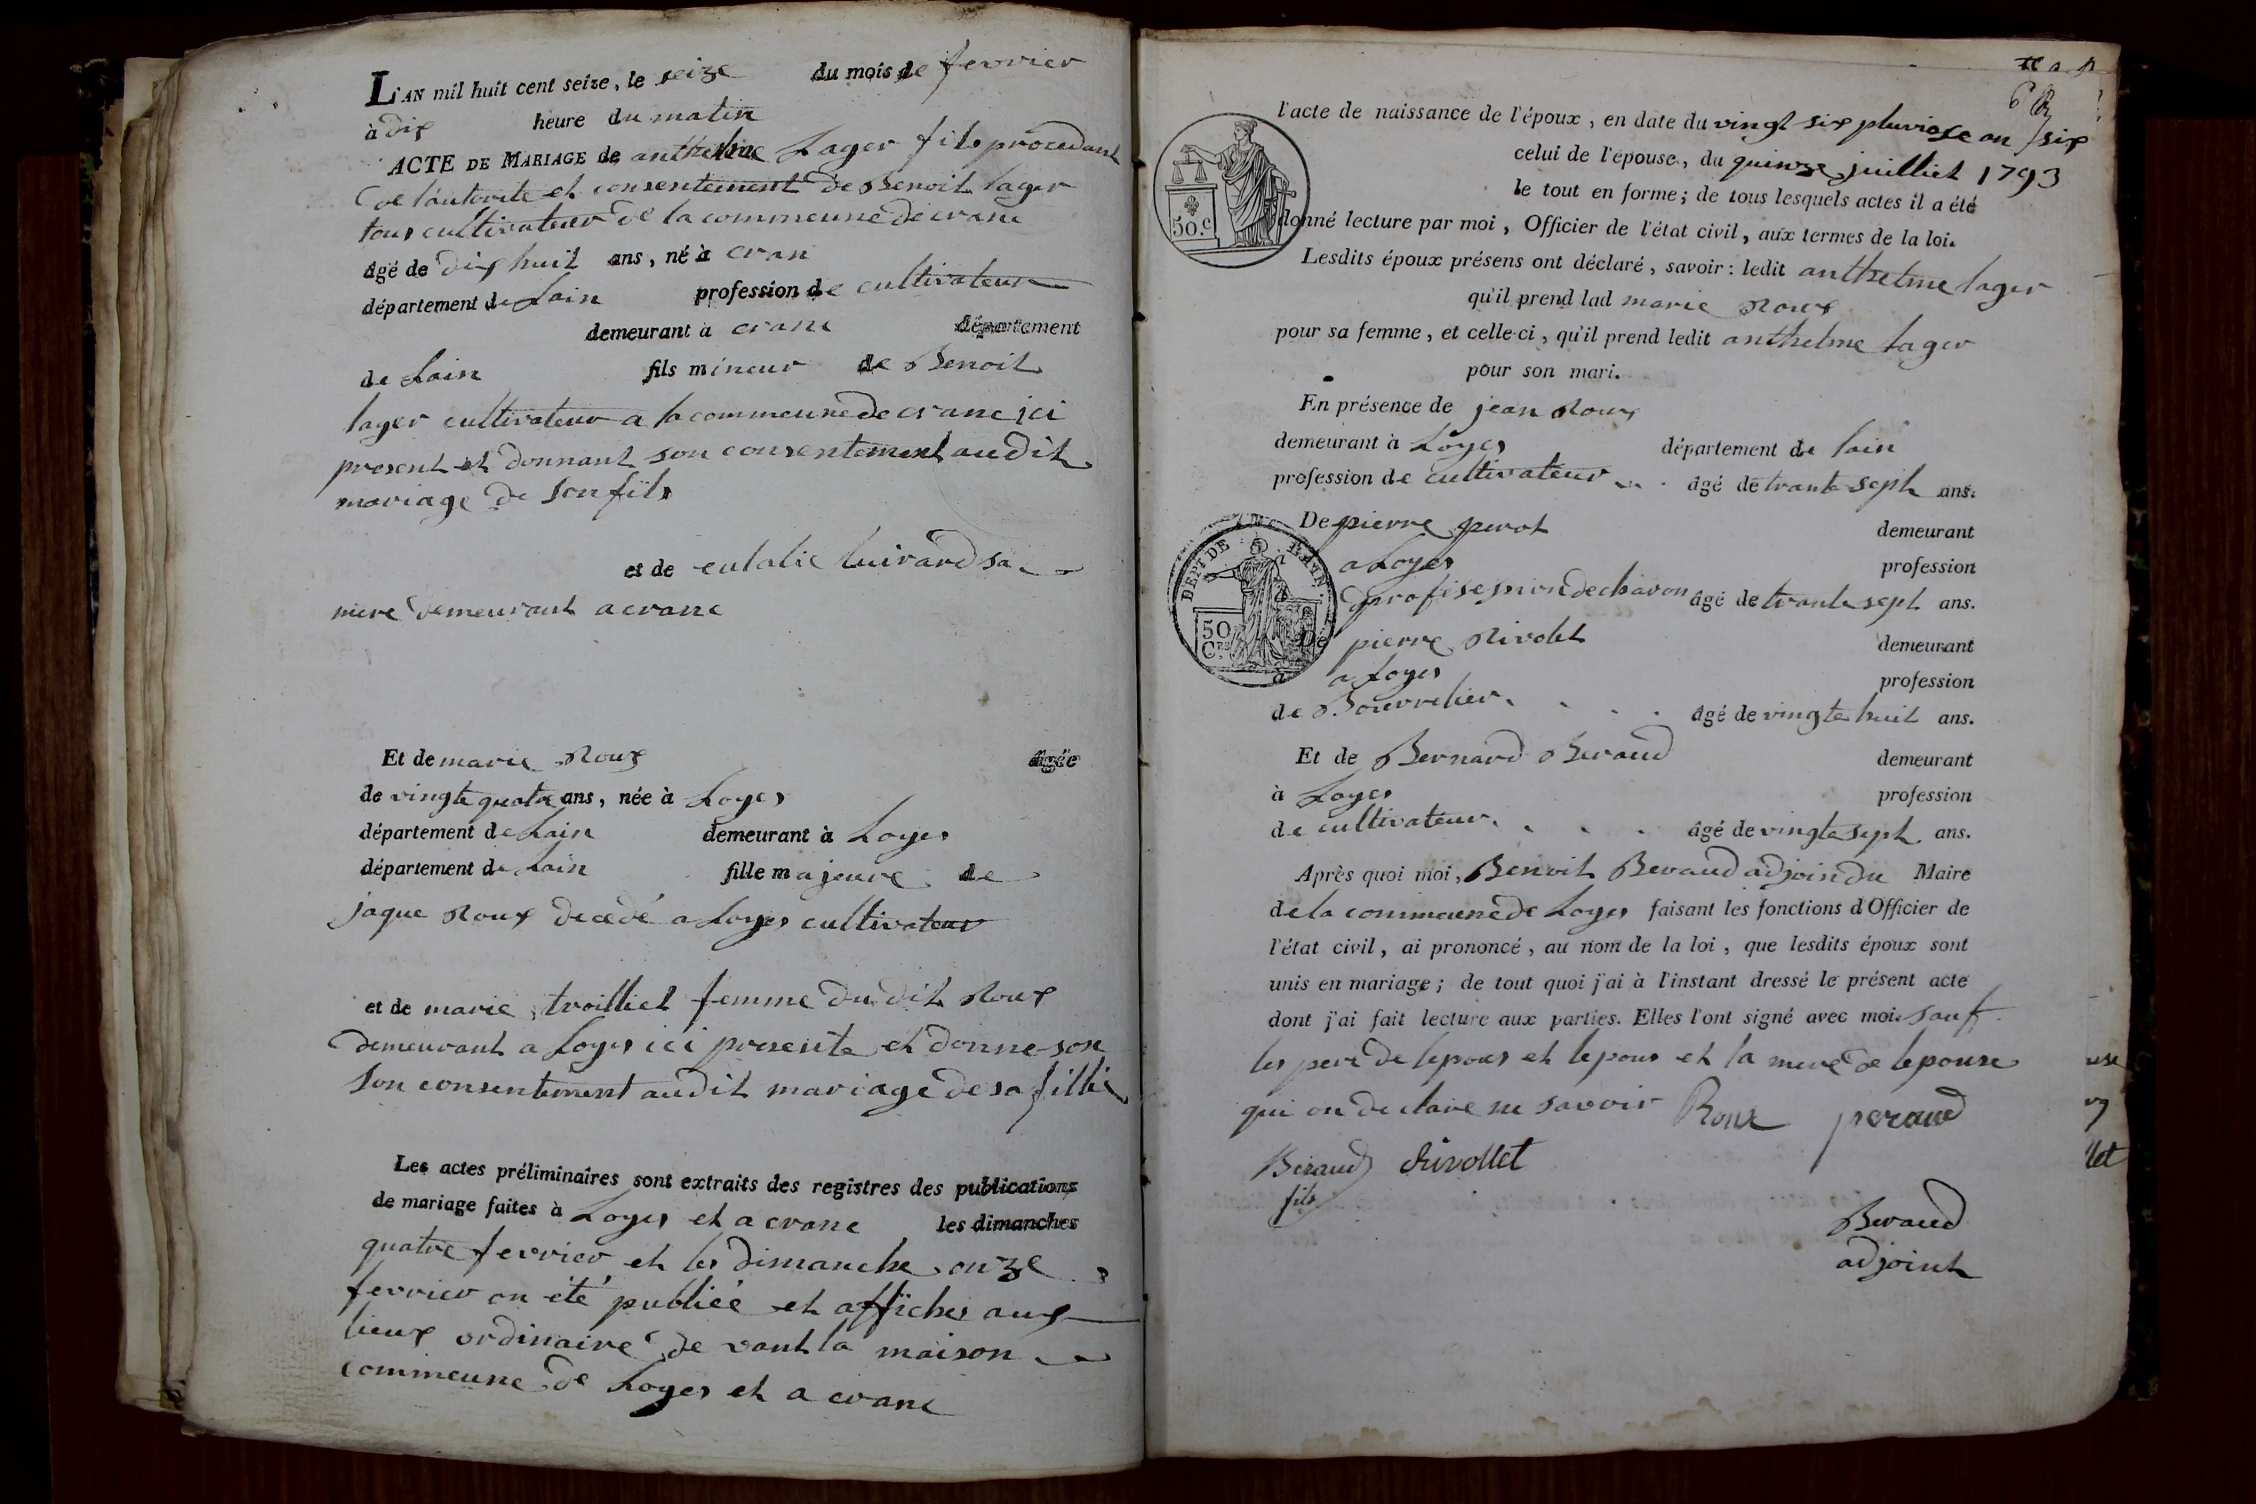 L'AN mil huit cent seize, le seize du mois de fevrier
à dix heure du matin
ACTE DE MARIAGE de anthelme Lager fils procedant
de lautorite et consentement de Benoit lager
tous cultivateur de la commeune de crane
âgé de dix huit ans, né à cran
département de Lain profession de cultivateur
demeurant à crane département
de Lain fils mineur de Benoit
lager cultivateur a la commeune de crane ici
present et donnant son consentement audit
mariage de son fils
et de eulalie luivard sa
mere demeurant a crane
Et de marie Roux âgée
de vingte quatre ans, née à Loyes
département de Lain demeurant à Loyes
département de Lain fille majeure de
jaque Roux decedé a Loyes cultivateur
et de marie troilliet femme du dit Roux
demeurant a Loyes ici presente et donne son
son consentement audit mariage de sa fillie
Les actes préliminaires sont extraits des registres des publications
de mariage faites à Loyes et a crane les dimanches
quatre fevrier et les dimanche onze
fevrier on été publiée et affiches aux
lieux ordinaire de vant la maison
commeune de Loyes et a crane
l'acte de naissance de l'époux, en date du vingt six pluviose an six
celui de l'épouse, du quinze juilliet 1793
le tout en forme; de tous lesquels actes il a été
donné lecture par moi, Officier de l'état civil, aux termes de la loi.
50.c
Lesdits époux présens ont déclaré, savoir: ledit anthelme lager
qu'il prend lad marie Roux
pour sa femme, et celle-ci, qu'il prend ledit anthelme lager
pour son mari.
En présence de jean Roux
demeurant à Loyes département de lain
profession de cultivateur âgé de trante sept ans.
De pierre perot demeurant
a Loyes profession
DEPT DE
50
Cs
profisesion de charon âgé de trante sept ans.
De pierre Rivolet demeurant
à a Loyes profession
de Bourrelier âgé de vingte huit ans.
Et de Bernard Beraud demeurant
à Loyes profession
de cultivateur âgé de vingte sept ans.
Après quoi moi, Benoit Beraud adjoin du Maire
de la commeune de Loyes faisant les fonctions d'Officier de
l'état civil, ai prononcé, au nom de la loi, que lesdits époux sont
unis en mariage; de tout quoi j'ai à l'instant dressé le présent acte
dont j'ai fait lecture aux parties. Elles l'ont signé avec moi sauf
les pere de lepous et lepous et la mere de lepouse
qui on declare ne savoir Roux peraud
Beraud Rivollet
fils
Beraud
adjoint